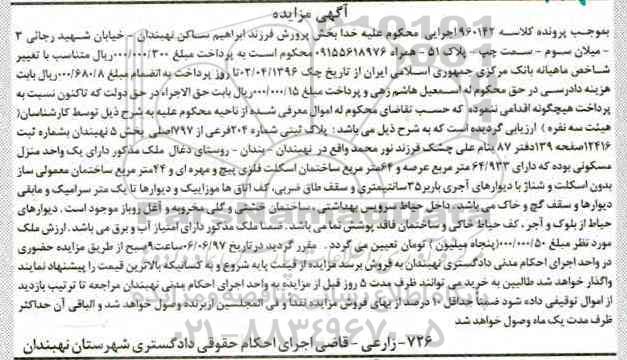 آگهی مزایده
بموجب پرونده کلاسه ۹۶۰۱۴۲اجرایی محکوم علیه خدا بخش پرورش فرزند ابراهیم ساکن نهبندان - خیابان شهید رجائی ۳
- میلان سوم - سمت چپ - پلاک ۵۱ - همراه ۰۹۱۵۵۶۱۸۹۷۶ محکوم است به پرداخت مبلغ ۰۰۰/۰۰۰/۳۰۰ریال متناسب با تغییر
شاخص ماهیانه بانک مرکزی جمهوری اسلامی ایران از تاریخ چک ۰۲/۰۴/۱۳۹۶تا روز پرداخت به انضمام مبلغ ۰۰۰/۶۸۰/۸ریال بابت
هزینه دادرسی در حق محکوم له اسمعیل هاشم زهی و پرداخت مبلغ ۰۰۰/۰۰۰/۱۵ریال بابت حق الاجراء در حق دولت که تاکنون نسبت به
پرداخت هیچگونه اقدامی ننموده که حسب تقاضای محکوم له اموال معرفی شده از ناحیه محکوم علیه به شرح ذیل توسط کارشناسان(
هیئت سه نفره ) ارزیابی گردیده است که به شرح ذیل می باشد : پلاک ثبتی شماره ۲۰۴فرعی از ۷۹۷اصلی بخش ۵ نهبندان بشماره ثبت
۱۲۴۱۶صفحه ۱۳۹دفتر ۸۷ بنام علی چشک فرزند نور محمد واقع در نهبندان - بندان - روستای دغال ملک مذکور دارای یک واحد منزل
مسکونی بوده که دارای ۶۴/۹۳۳ متر مربع عرصه و ۶۴متر مربع ساختمان اسکلت فلزی پیچ و مهره ای و ۴۴متر مربع ساختمان معمولی ساز
بدون اسکلت و شناژ با دیوارهای آجری باربر۳۵سانتیمتری و سقف طاق ضربی، کف اتاق ها موزاییک و دیوارها تا یک متر سرامیک و مابقی
دیوارها و سقف گچ و خاک می باشد. داخل حیاط سرویس بهداشتی ، ساختمان خشتی و گلی مخروبه و آغل روباز موجود است . دیوارهای
حیاط از بلوک و آجر ، کف حیاط خاکی و ساختمان فاقد پوشش نما می باشد. ضمنا ملک مذکور دارای امتیاز آب و برق می باشد. ارزش ملک
مورد نظر مبلغ ۰۰۰/۰۰۰/۵۰(پنجاه میلیون ) تومان تعیین می گردد . مقرر گردید در تاریخ ۰۶/۰۶/۹۷ساعت۹صبح از طریق مزایده حضوری
در واحد اجرای احکام مدنی دادگستری نهبندان به فروش برسد مزایده از قیمت پایه شروع و به کسانیکه بالاترین قیمت را پیشنهاد نمایند
واگذار خواهد شد طالبین به خرید می توانند ظرف مدت ۵ روز قبل از مزایده به واحد اجرای احکام مدنی نهبندان مراجعه تا ترتیب بازدید
از اموال توقیفی داده شود ضمناً حداقل ۱۰ درصد از بهای فروش مزایده نقدا و فی المجلس از برنده وصول خواهد شد و الباقی آن حداکثر
ظرف مدت یک ماه وصول خواهد شد
۷۲۶- زارعی - قاضی اجرای احکام حقوقی دادگستری شهرستان نهبندان
۰۲۱-۸۸۳۴۹۶۷۰-۵